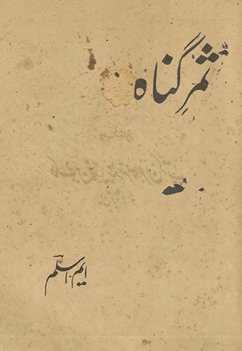 ثمرِ گناہ
ایم اسلم